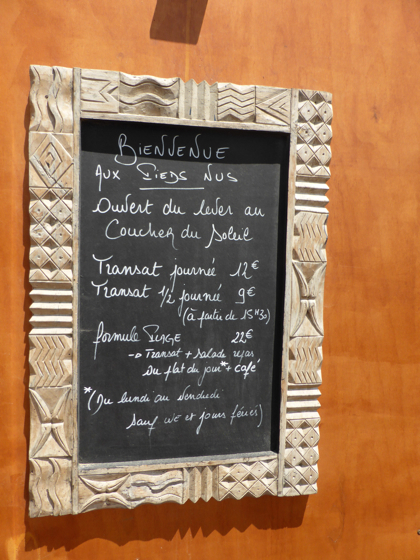 BIENVENUE
AUX PIEDS NUS
Ouvert du lever au
Coucher du Soleil
Transat journée 12€
Transat 1/2 journée 9€
(à partir de 15H30)
formule PLAGE 22€
→ Transat + Salade repas
Ou plat du jour* + Café
*(Du lundi au Vendredi
Sauf WE et jours fériés)